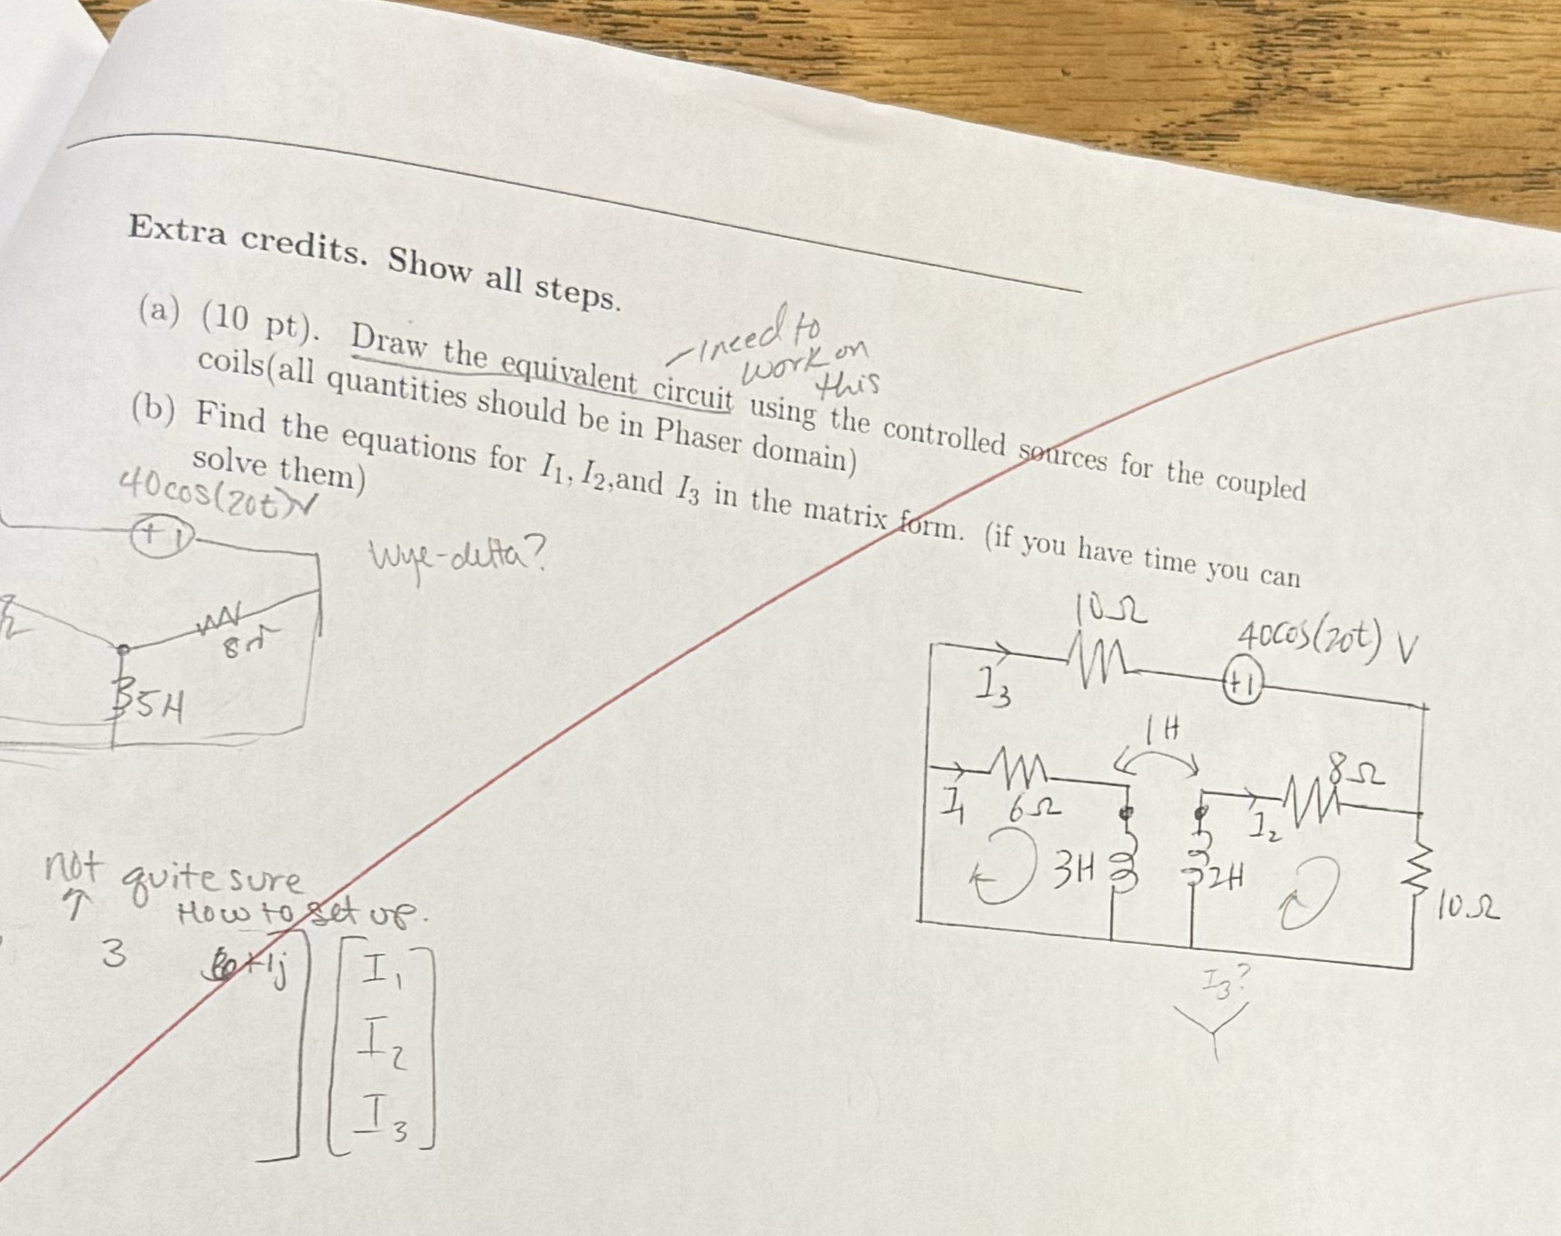 Extra credits. Show all steps.
(a) (10 pt). Draw the equivalent circuit using the controlled sources for the coupled
coils(all quantities should be in Phaser domain)
- I need to
work on
this
(b) Find the equations for I₁, I₂,and I₃ in the matrix form. (if you have time you can
solve them)
40cos(20t)V
+ -
Wye-delta?
8Ω
5H
10Ω
40cos(20t) V
I₃
+ -
1H
8Ω
I₁
6Ω
I₂
3H
2H
10Ω
I₃?
not quite sure
How to set up.
3
+1j
I₁
I₂
I₃